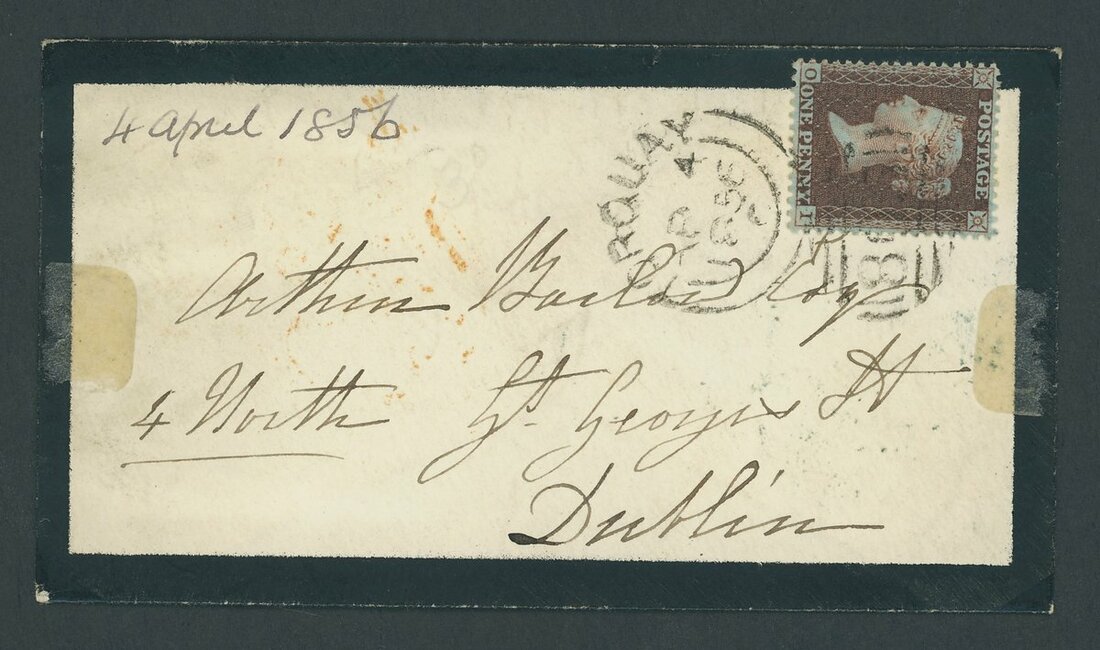 4 april 1856
TORQUAY
AP 4
1856
POSTAGE
ONE PENNY
O I
Arthur Barlow Esq
4 North Gt. Georges St
Dublin